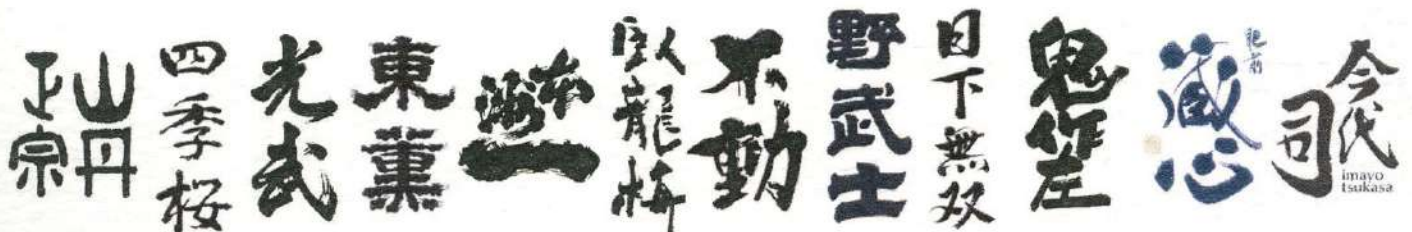 山丹
正宗
四季桜
光武
東薫
本洲一
臥龍梅
不動
野武士
日下無双
鬼作左
肥前
蔵心
今代
司
imayo
tsukasa